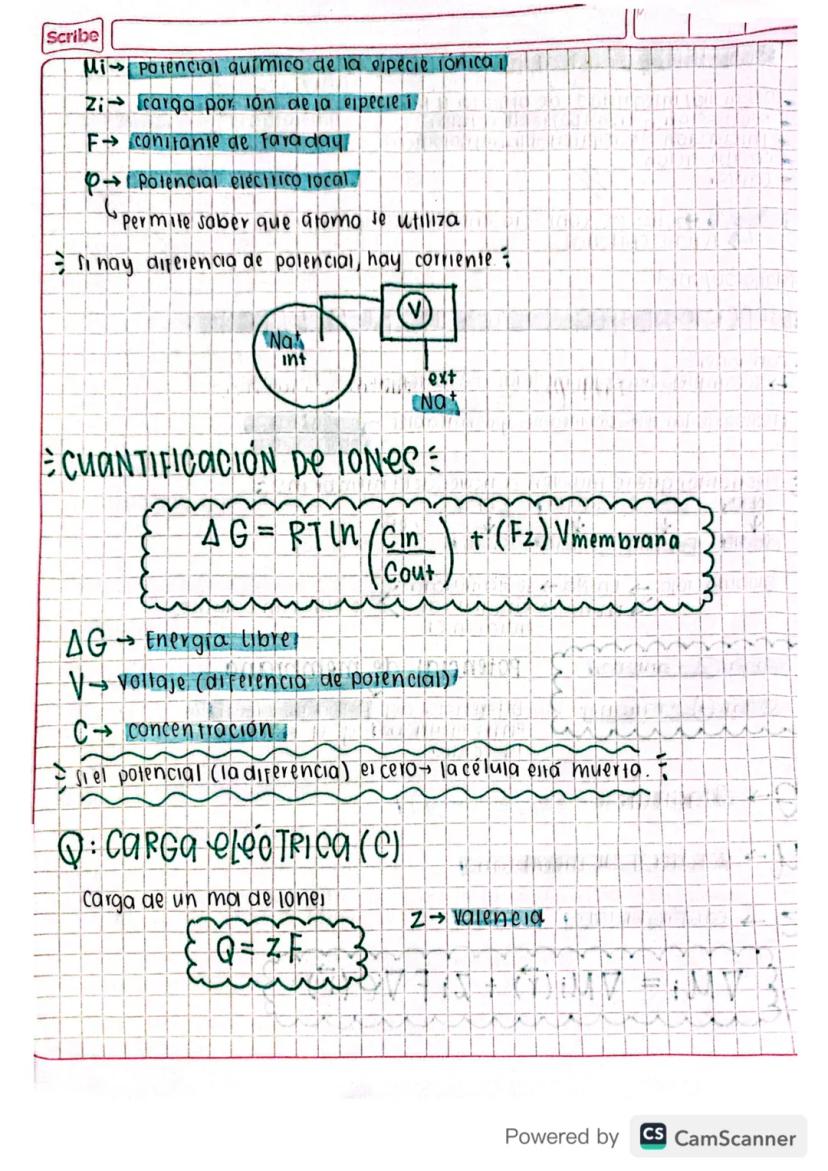 Scribe
μi→ Potencial químico de la especie iónica i
Zi→ carga por ión de la especie i
F→ constante de Faraday
φ→ Potencial eléctrico local
Permite saber que átomo se utiliza
Si hay diferencia de potencial, hay corriente
V
Na+
int
ext
Na+
CUANTIFICACIÓN DE IONES
ΔG = RT ln (Cin/Cout) + (Fz) Vmembrana
ΔG → Energía libre
V→ Voltaje (diferencia de potencial)
C→ concentración
Si el potencial (la diferencia) es cero→ la célula está muerta.
Q: CARGA ELÉCTRICA (C)
Carga de un mol de iones
Z→ valencia
Q = zF
Powered by CS CamScanner